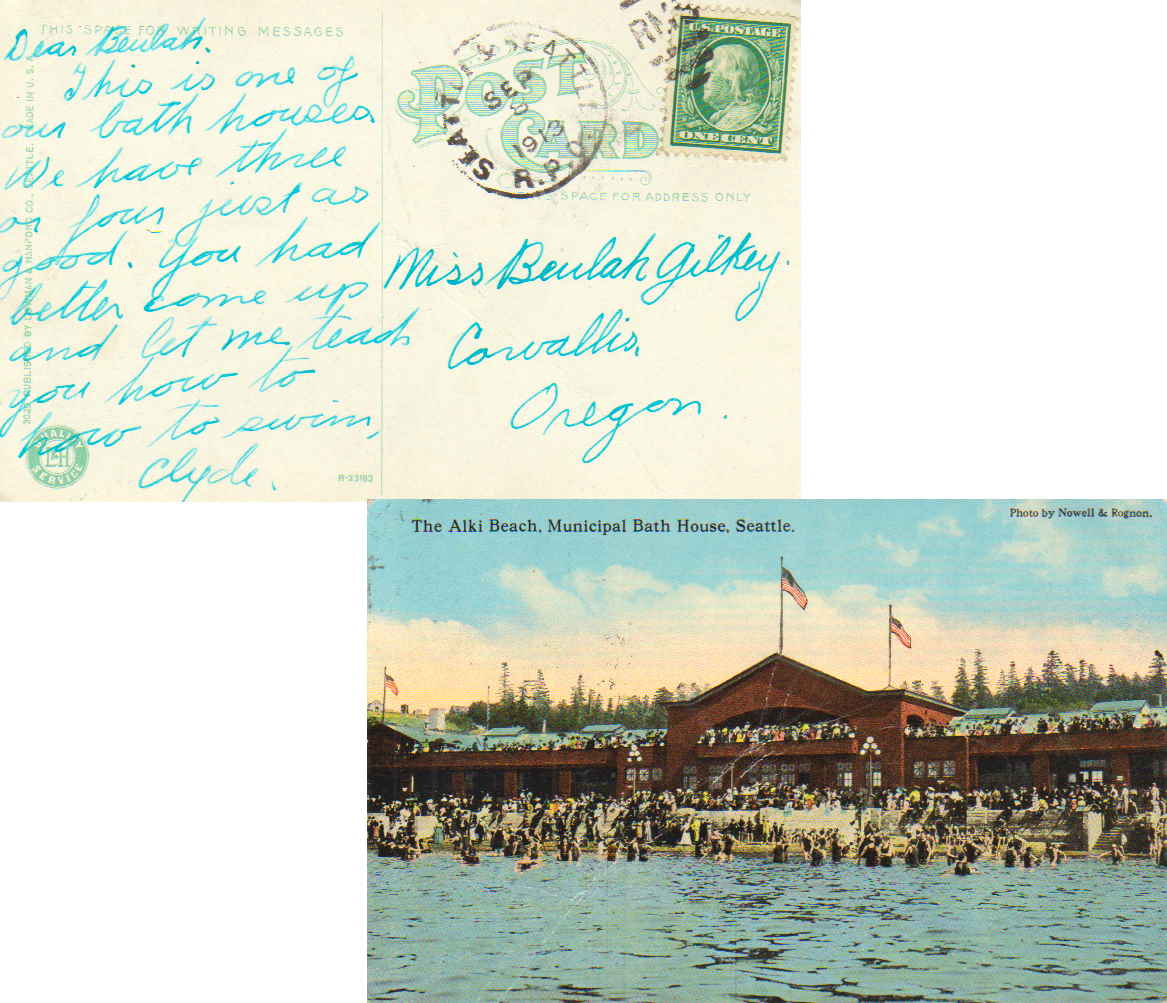 THIS SPACE FOR WRITING MESSAGES
Dear Beulah.
This is one of
our bath houses.
We have three
or four just as
good. You had
better come up
and let me teach
you how to
how to swim,
Clyde.
POST
CARD
SEATTLE
SEP
1913
R.P.O.
U.S. POSTAGE
ONE CENT
SPACE FOR ADDRESS ONLY
Miss Beulah Gilkey.
Corvallis,
Oregon.
QUALITY
L&H
SERVICE
The Alki Beach, Municipal Bath House, Seattle.
Photo by Nowell & Rognon.